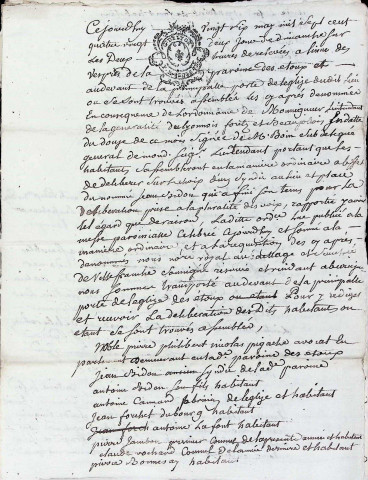 Cejourdhuy vingt six may mil sept cent
quatre vingt jour de dimanche sur
Les Deux heures de relevée a l'issue de
Vespres de la paroisse des etoux et
audevant de la principalle porte de leglise dudit lieu
ou se sont trouvés assemblés les cy aprés denommés
En consequence de Lordonnance de Monseigneur Lintendant
de la generalité du lyonnois forêts et Beaujolois
du douze de ce mois signée de Mr
general de mond. seig. Lintendant portant que les
habitants sassembleront en la maniere ordinaire a leffet
de deliberer sur le choix d'un sindic au lieu et place
du nommé jean Bidon qui a fini son tems pour la
Deliberation prise a la pluralité des voix, rapportée
tel egard que de raison, Ladite ordre lue publiée a la
messe paroissialle celebrée ajourdhuy et sonnée a la
maniere ordinaire, et a la requisition des cy aprés
denommés nous nore royal au
de Villefranche reservé et rendant
nous sommes transporté au devant de la principalle
porte de leglise des etoux pour y rediger
et recevoir La deliberation des Dits habitants ou
etant se sont trouvés assemblés,
Noble pierre philibert nicolas pigache avocat en
parlement demeurant en lad. paroisse des etoux
Jean Bidon ancien sindic de lad. paroisse
antoine Bidon son fils habitant
antoine Camard fabricien de leglise et habitant
Jean forchet dubourg habitant
antoine La font habitant
pierre Jambon premier Consul de la presente année et habitant
claude rochard Consul de lannée derniere et habitant
pierre Bonnesay habitant